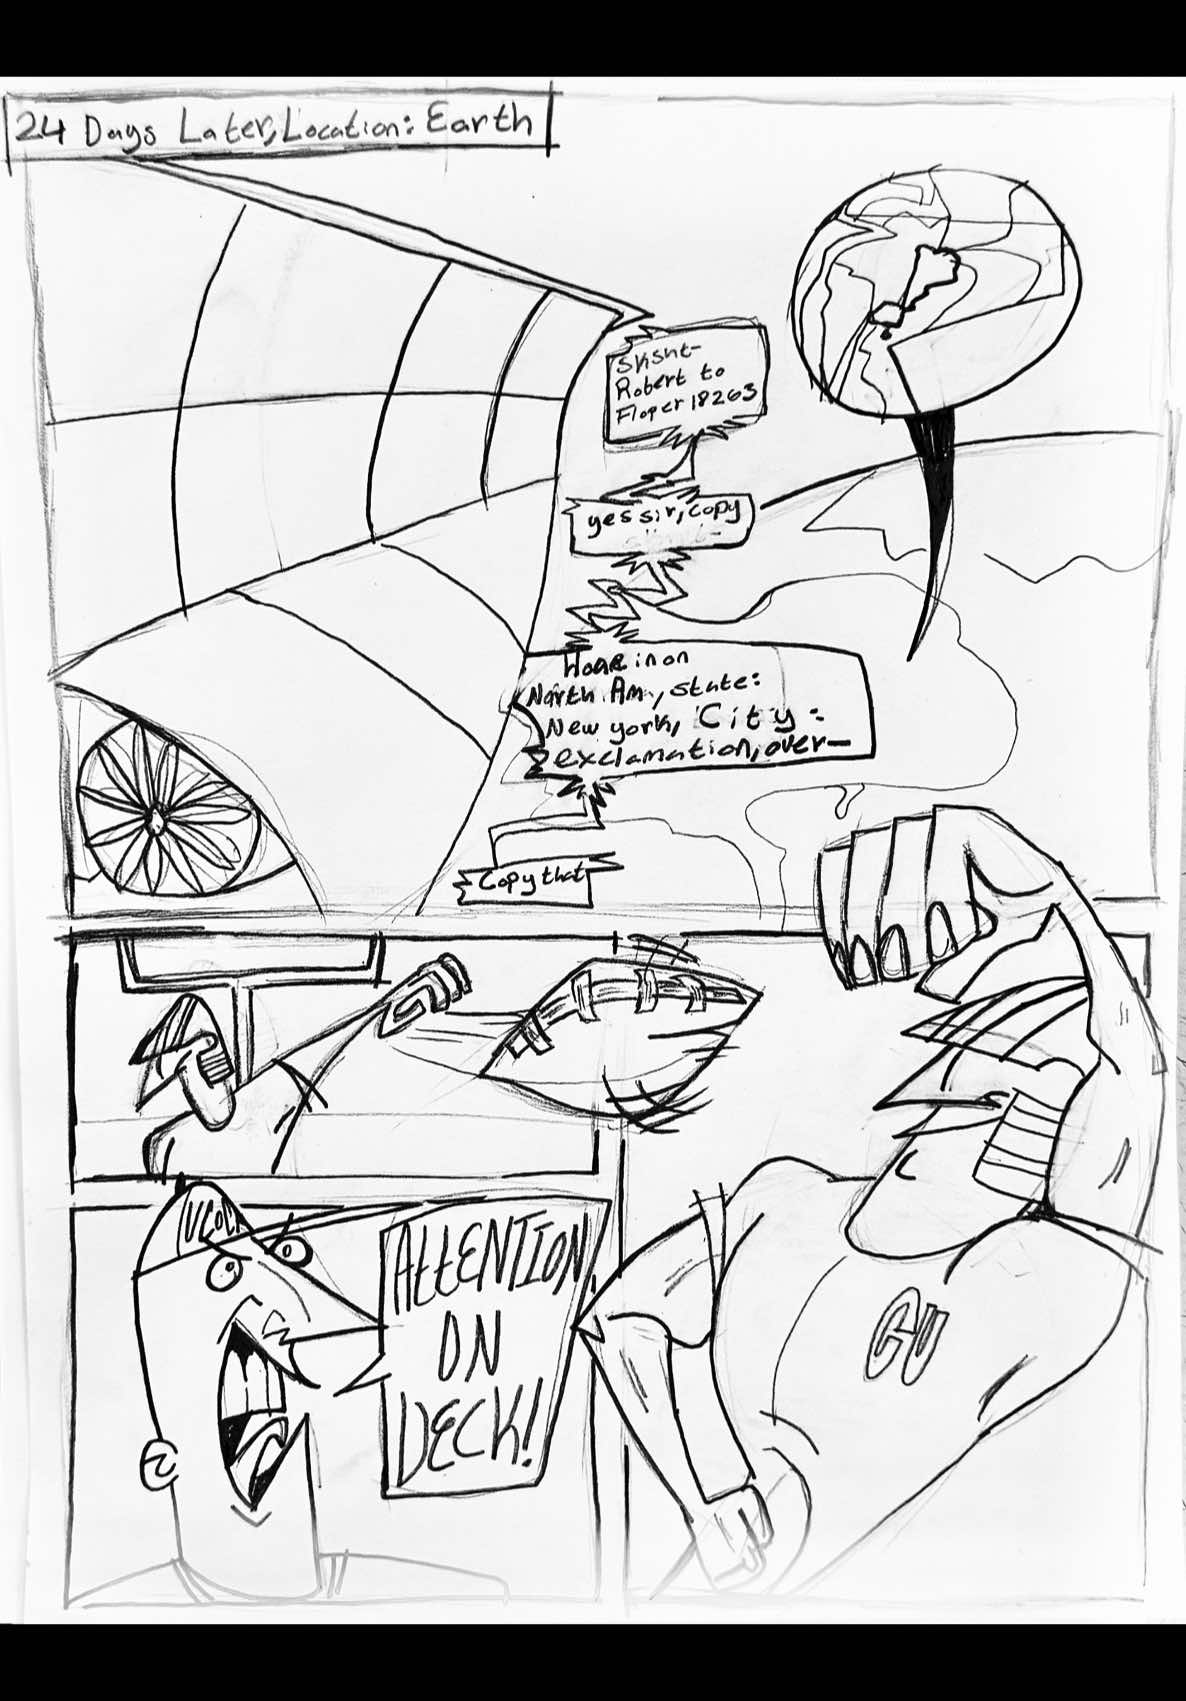 24 Days Later, Location: Earth
sksht-
Robert to
Floper 18263
yes sir, copy
Home in on
North Am., state:
New york, City :
exclamation, over—
Copy that
ATTENTION
ON
DECK!
CU